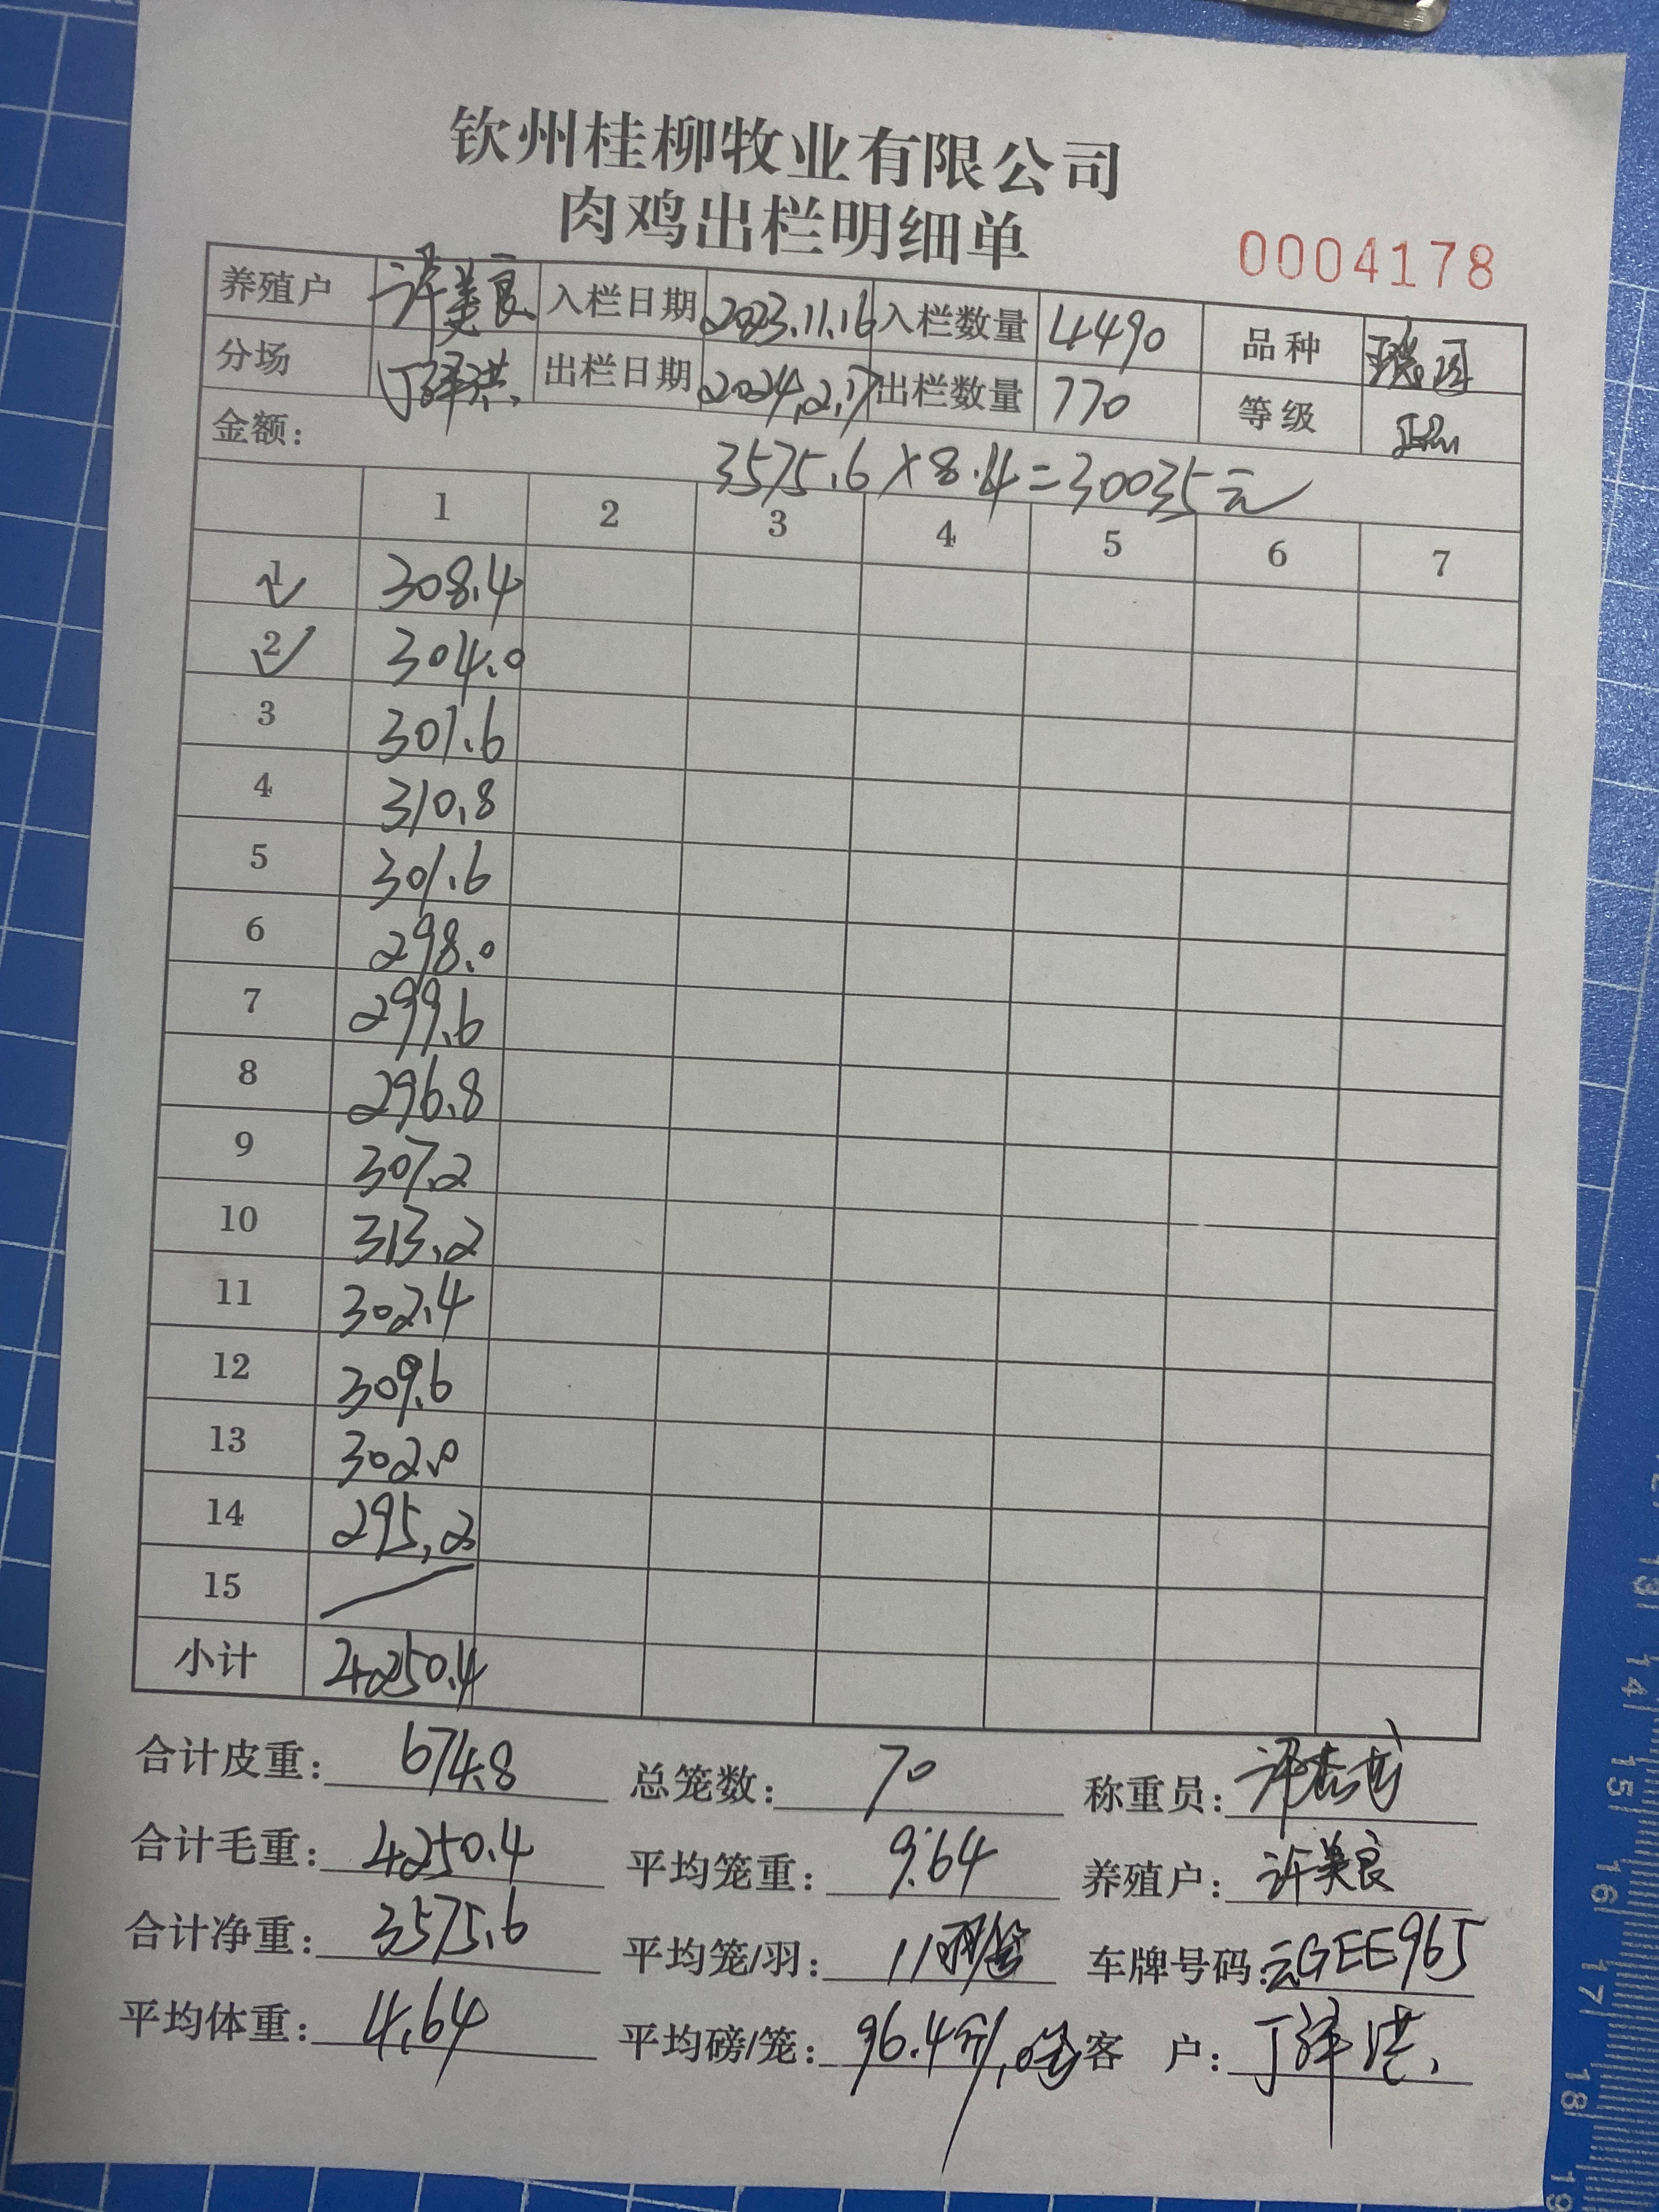 钦州桂柳牧业有限公司
肉鸡出栏明细单
0004178
养殖户 许美良 入栏日期 2023.11.16 入栏数量 4490 品种
分场 丁祥洪. 出栏日期 2024.2.17 出栏数量 770 等级
金额: 3575.6×8.4=30035元
1 2 3 4 5 6 7
1 308.4
2 304.0
3 301.6
4 310.8
5 301.6
6 298.0
7 299.6
8 296.8
9 307.2
10 313.2
11 302.4
12 309.6
13 302.0
14 295.2
15
小计 4250.4
合计皮重: 674.8 总笼数: 70 称重员:
合计毛重: 4250.4 平均笼重: 9.64 养殖户: 许美良
合计净重: 3575.6 平均笼/羽: 11 车牌号码: 云GEE965
平均体重: 4.64 平均磅/笼: 96.4斤/ 客户: 丁祥洪.
12 13 14 15 16 17 18 19